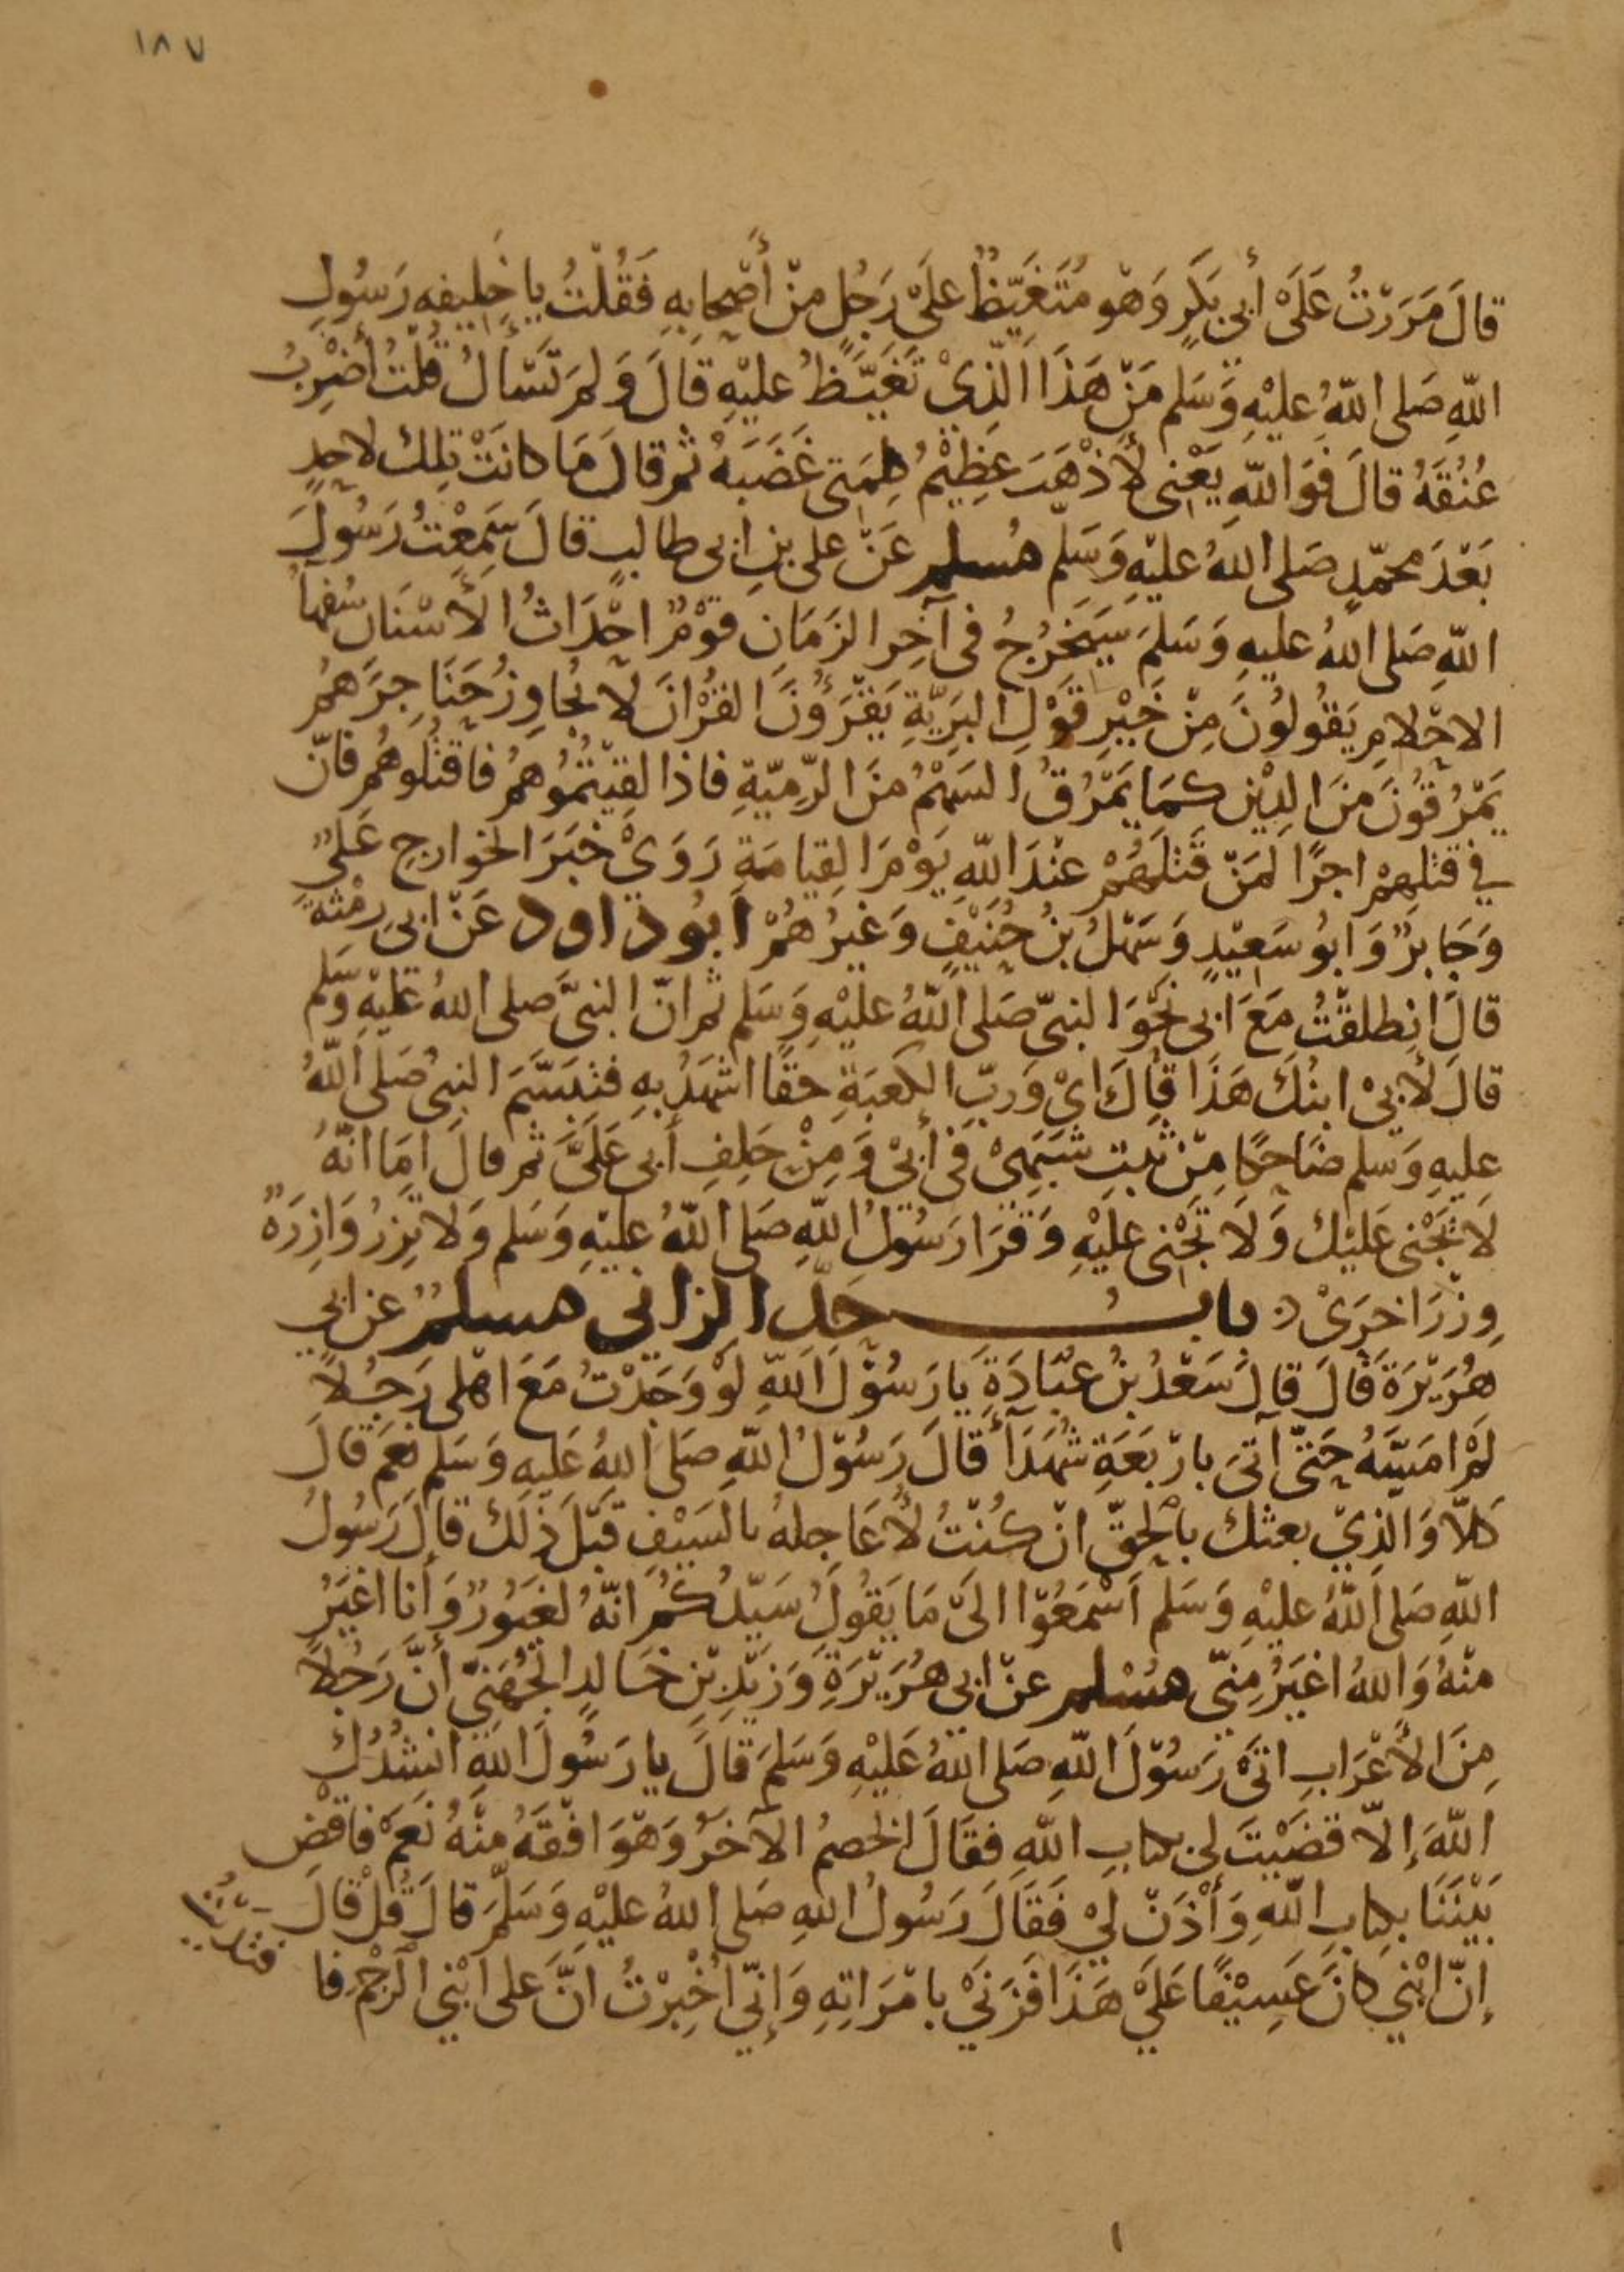 ١٨٧
قَالَ مَرَرْتُ عَلَىْ أَبِى بَكَرٍ وَهْوَ مُتَغَيِّظٌ عَلَىْ رَجُلٍ مِنْ أَصْحَابِهِ فَقُلْتُ يا خَلِيفه رَسُولِ
اللّهِ صَلى اللّهُ عليْهِ وَسَلم مَنْ هَذَا الَّذِىْ تَغَيَّظُ عليْهِ قَالَ وَلِمَ تَسْأَلُ قُلْتُ أَضْرِبُ
عُنُقَهُ قالَ فَوَاللّهِ يَعْنِى لَأَذْهَبَ عَظِيْمُ كلِمَتِى غَضَبَهُ ثم قالَ مَا كانَتْ تِلك لاحدٍ
بَعْدَ محمّدٍ صَلى اللهُ عليْهِ وَسَلّم مُسلم عَنْ على بنِ ابى طالبٍ قالَ سَمِعْتُ رَسُولَ
اللّهِ صَلى اللهُ عليهِ وَسَلمَ سَيَخرُجُ فى آخِر الزمَانِ قوْمٌ احْدَاثُ الأَسْنَان سُفهآءُ
الاحْلامِ يَقُولُونَ مِنْ خَيْرِ قَوْلِ البَرِيّةِ يَقْرَؤُنَ القرْانَ لا يُجاوِزُ حَنَاجِرَهمُ
يَمْرُقُونَ مِنَ الدِيْن كمَا يَمْرُقُ السَهْمُ منَ الرّمِيّةِ فاذا لقِيْتُمُوهُمْ فاقتُلوهُم فانّ
فِي قتْلِهِمْ اجرًا لمَنْ قَتْلَهُمْ عنْدَ اللّهِ يَوْمَ القِيامَةِ رَوَىْ خَبَرَ الخوارجِ عَلِىٌّ
وَجَابرٌ وَابُو سَعِيْدٍ وَسَهْلُ بنُ حُنَيْفٍ وَغيْرُهُمْ ابُو دَاود عَنْ ابى رمْثة
قالَ انطلقْتُ مَعَ ابى نحْوَ النبىّ صَلى اللّهُ عليْهِ وَسَلم ثم انّ النبىَّ صلى اللهُ عَليْهِ وسَلم
قالَ لأبىْ ابنُكَ هَذَا قالَ اىْ وَربّ الكعْبَةِ حقًا اشهَدُ بهِ فتبَسَّمَ النبىُ صَلى اللّهُ
عليهِ وَسَلم ضَاحكا مِنْ ثبتِ شبَهِىْ فى أبىْ وَمِنْ حَلِفِ أبى عَلَىَّ ثم قالَ امَا انّهُ
لَا يَجْنى عَليْك وَلَا تَجْنِى عليْهِ وَقرَا رَسُوْلُ اللّهِ صَلى اللّهُ عليْهِ وَسَلم وَلا تزِرُ وَازِرَةٌ
وِزْرَ اخرَىْ باب حَدّ الزانى مسلمٌ عن ابي
هُرَيْرَةَ قَالَ قالَ سَعْدُ بنُ عبَادَةِ يَا رَسُوْلَ اللّهِ لوْ وَجَدْتُ مَعَ اهْلى رَجُلاً
لمْ امَسّهُ حَتّى آتىَ بارْبَعَةِ شُهَدَآءَ قالَ رَسُوْلُ اللّهِ صَلى اللهُ عَليهِ وَسَلم نعَمْ قالَ
كَلّا وَالّذِيْ بعثك بالْحقّ انْ كُنْتُ لَأُعَاجلهُ بالسَيْفِ قبْلَ ذلك قالَ رَسُولُ
اللّهِ صَلى اللّهُ عليْهِ وَسَلم اسْمَعُوْا الىْ مَا يَقُولُ سَيّدُكمُ انّهُ لغَيُورٌ وَأَنا اغْيَرُ
منْهُ وَاللهُ اغيَرُ مِنىّ مُسْلم عنْ ابى هُرَيْرَةِ وَزيْدِ بْن خَالدٍ الجُهَنىّ أنَّ رَجُلًا
مِنَ الأَعْرَابِ اتَىْ رَسُوْلَ اللّهِ صَلى اللّهُ عَليْهِ وَسَلمَ قَالَ يا رَسُولَ اللّهِ انْشُدُكَ
اللّهَ إلاّ قضَيْتَ لى بكتابِ اللّهِ فقَالَ الخصمُ الآخرُ وَهْوَ افْقَهُ منْهُ نَعَمْ فاقْضِ
بَيْنَنَا بكِتابِ اللّهِ وَأْذَنْ لِيْ فَقَالَ رَسُولُ اللهِ صَلى اللهُ عليْهِ وَسَلّمَ قالَ قُلْ قَالَ
إنّ ابْنِي كانَ عَسِيْفًا عَلَيْ هَذَا فَزَنَيْ بامْرَاتِهِ وَإنّى اخْبِرْتُ انَّ عَلى ابْنِي الرّجْمَ فا